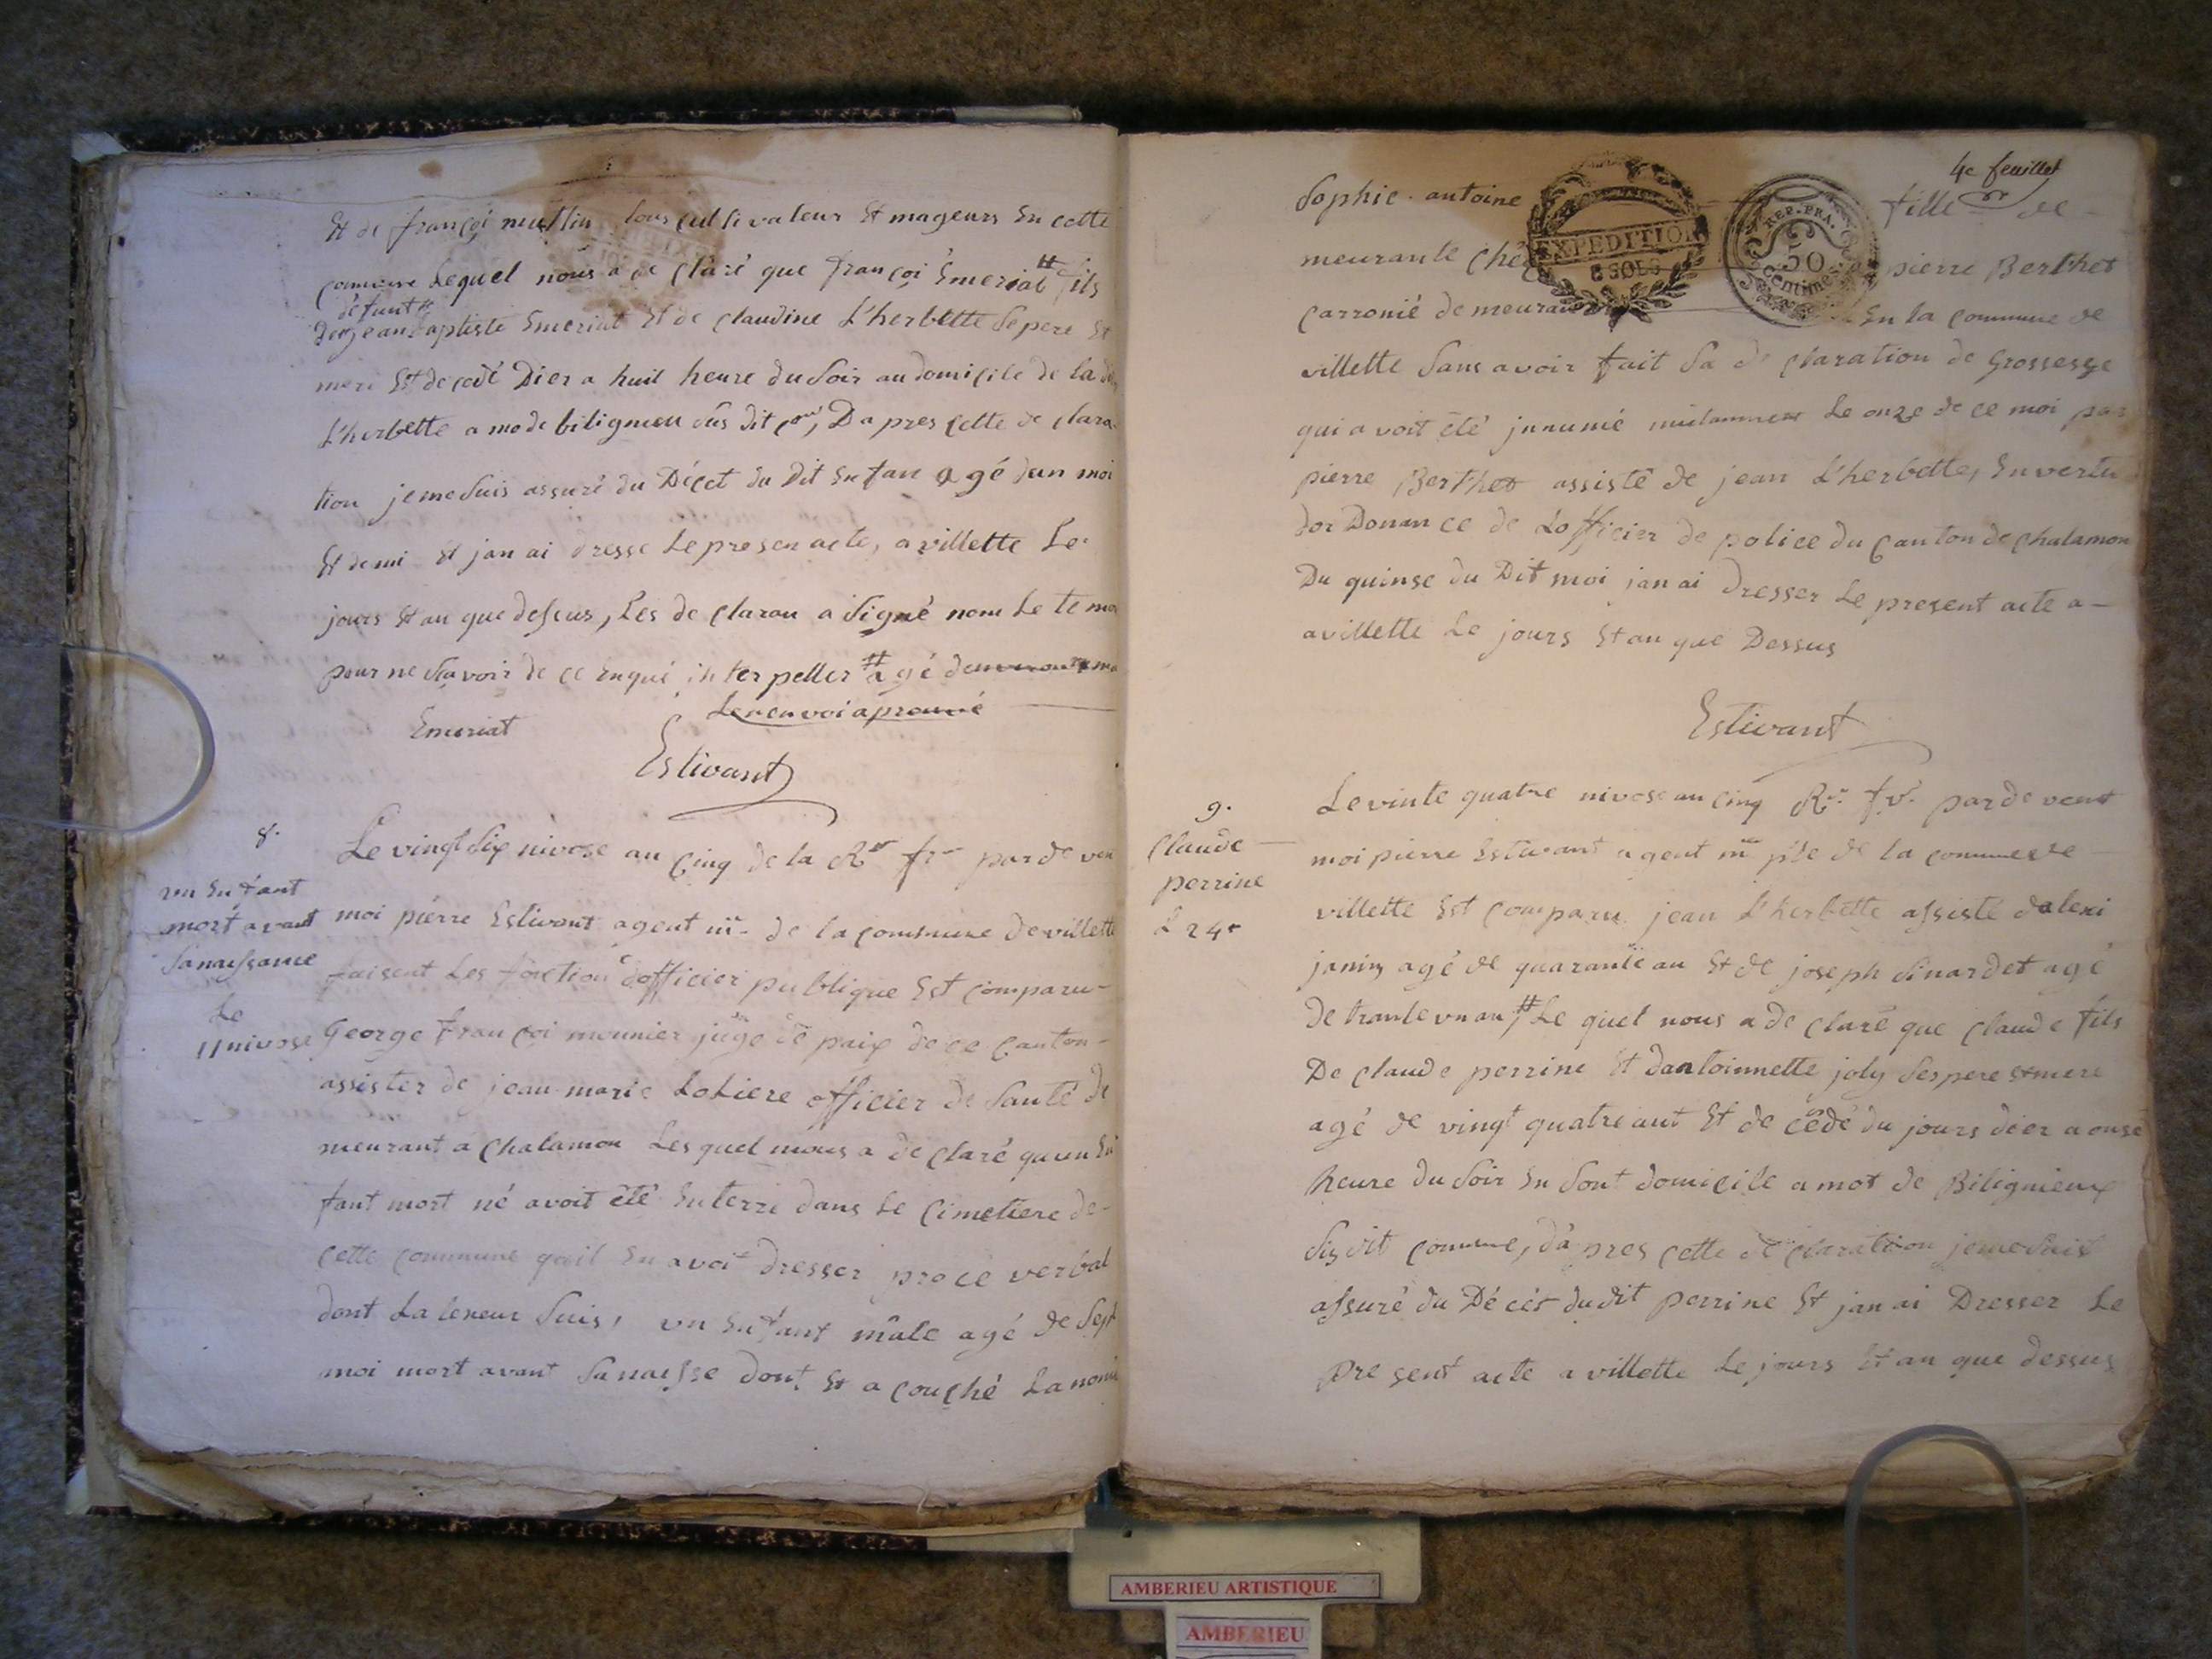 Et de françoi neullin tous cultivateur Et mageurs En cette
commune Lequel nous a de claré que françoi Emeriat # fils
défunt #
jean Baptiste Emeriat Et de claudine L'herbette Se pere Et
mere Est de cedé Dier a huit heure du Soir au domicile de la
L'herbette a mo de biligneu Sus dit D apres cette de clara
tion je me Suis assuré du Décet du Dit Enfan agé dun moi
Et demi Et jan ai dresse Le presen acte, a villette Le
jours Et an que dessus, Les de claran a Signé nom Le temo
pour ne Savoir de ce Enqui interpeller # agé
Le renvoi aprouvé
Emeriat
Estivant
8.
un Enfant
mort avant
Sanaissance
Le
11 nivose
Le vingt Six nivose au Cinq de la Rer frse par de ven
moi piérre Estivant agent m de la commune de villette
faisent Les fonction dofficier publique Est comparu
George françoi mounier juge de paix de ce Canton
assister de jean marie LoLiere officier de Santé de
meurant a Chalamon Lesquel mous a de claré quun En
fant mort né avoit été Enterre dans Le Cimetiere de
cette commune quil En avoi dresser proce verbal
dont La teneur Suis, un Enfant mâle agé de Sept
moi mort avant Sanaisse dont Et a couché La nomé
4e feuillet
Sophie antoine fille de
EXPEDITION
6 SOLS
REP. FRA.
50
Centimes
meurante Ché pierre Berthet
carronié demeurant En la commune de
villette Sans avoir fait Sa de claration de Grossesse
qui a voit été jnnumé Le onze de ce moi par
pierre Berthet assisté de jean L'herbette, En vertu
dor Donance de Lofficier de police du Canton de chalamon
Du quinse du Dit moi jan ai dresser Le present acte a
a villette Le jours Et an que Dessus
Estivant
9.
Claude
perrine
L 24e
Le vinte quatre nivose au cinq Rer fr. par de vent
moi pierre Estivant agent m ple de la commune de
villette Est comparu jean L'herbette assisté dalexi
janin agé de quarante an Et de joseph Sinardet agé
de trante un an, # Le quel nous a de claré que Claude fils
De claude perrine Et dantoinnette joly Ses pere Et mere
agé de vingt quatre ant Et de cédé du jours dier a onse
heure du Soir En Sont domicile a mot de Bilignieux
Sus dit commune, dá pres cette de claration je me Suis
assuré du Décés dudit perrine Et jan ai Dresser Le
present acte a villette Le jours Et an que dessus
AMBERIEU ARTISTIQUE
AMBERIEU